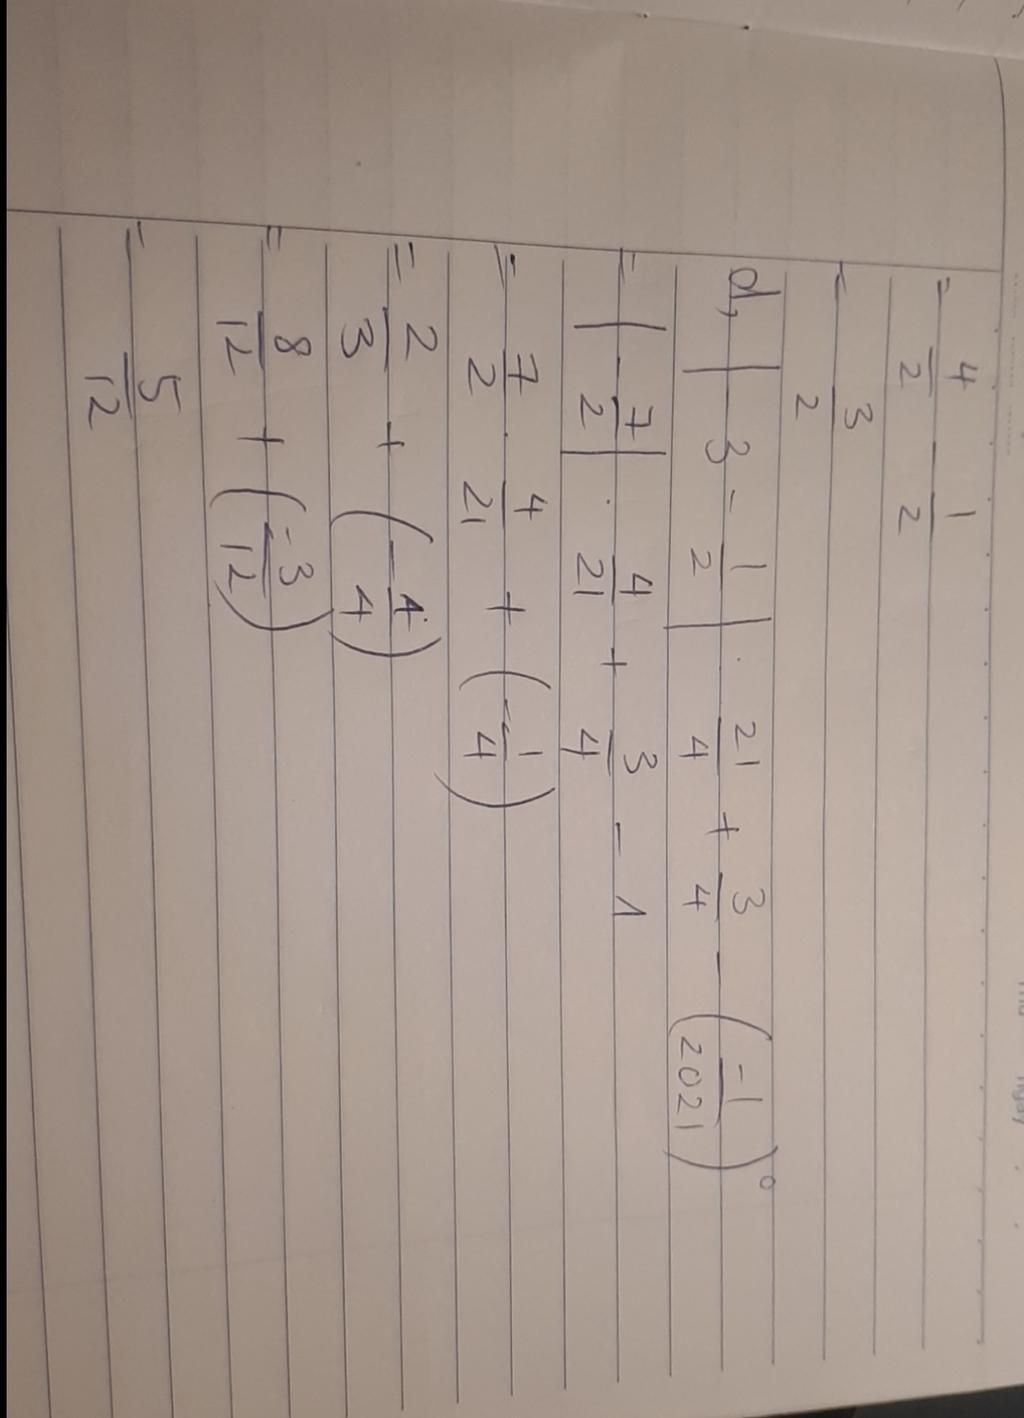 = 4/2 - 1/2
= 3/2
d, | 3 - 1/2 | . 21/4 + 3/4 - (-1/2021)⁰
= | -7/2 | . 4/21 + 3/4 - 1
= 7/2 . 4/21 + (-1/4)
= 2/3 + (-1/4)
= 8/12 + (-3/12)
= 5/12